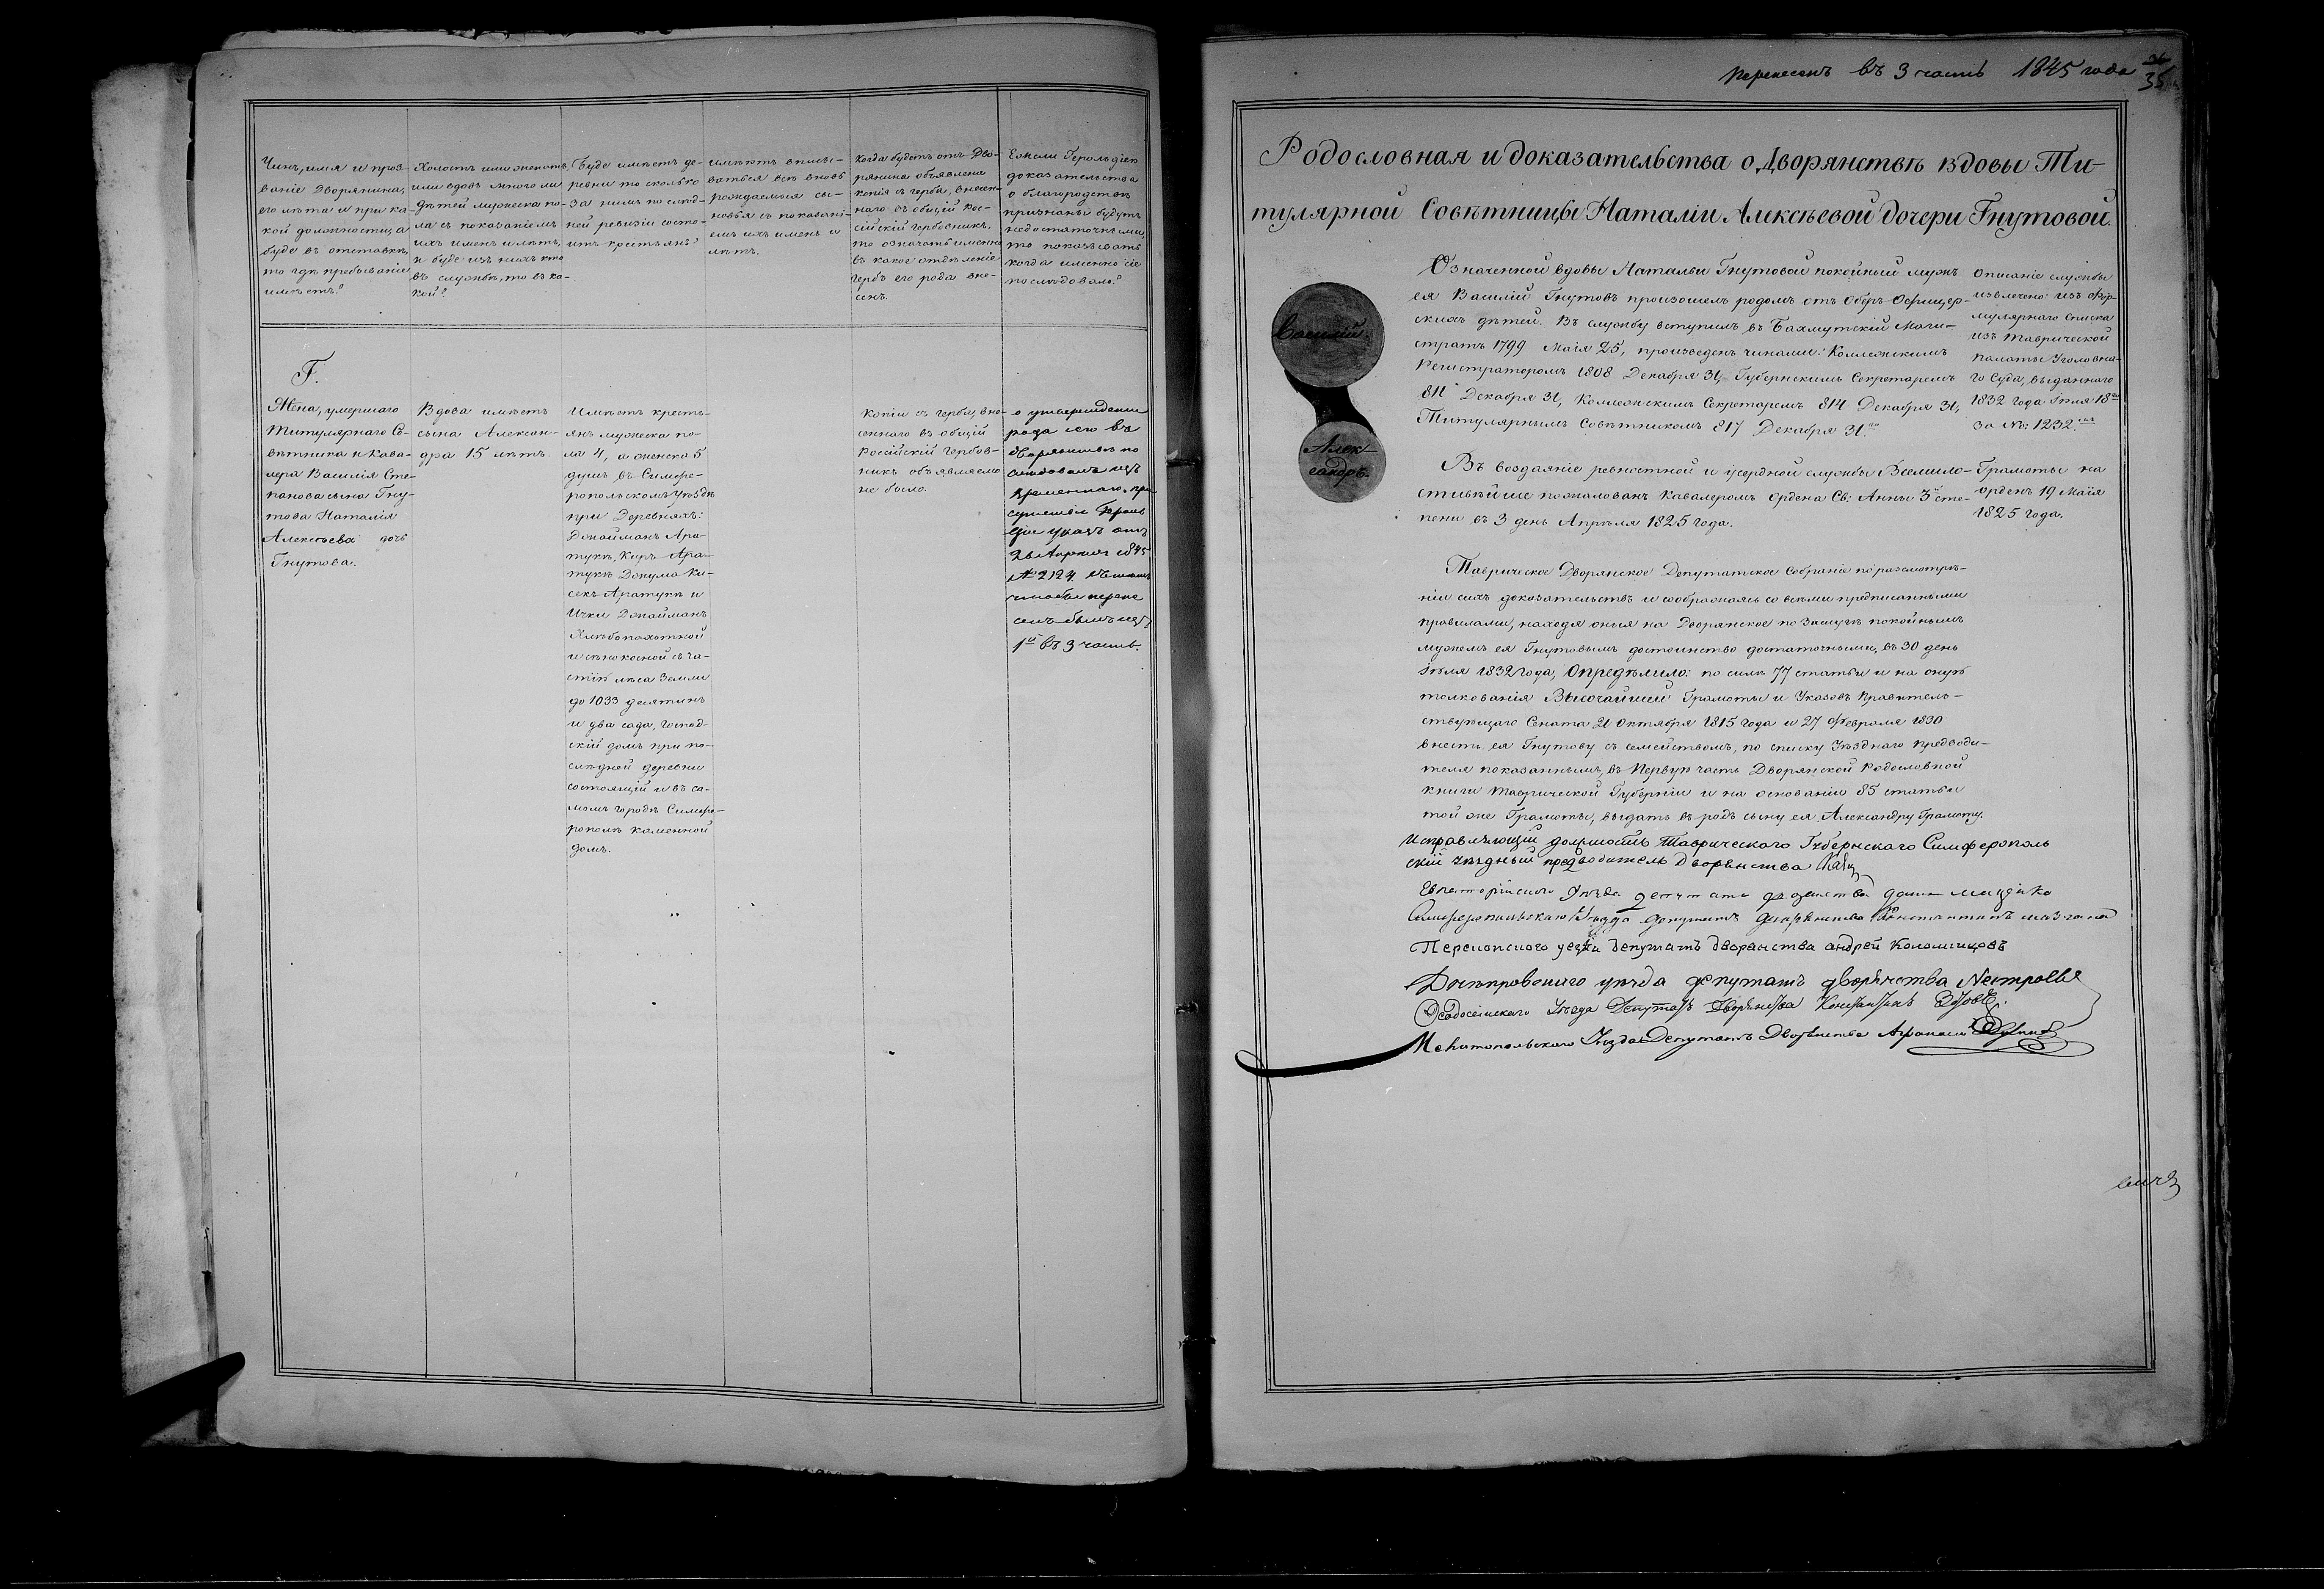 Чинъ, имя и проз-
ваніе Дворянина,
его лѣта и при ка-
кой должности, а
буде въ отставкѣ,
то гдѣ пребываніе
имѣетъ?
Холостъ или женатъ,
или вдовъ много ли
дѣтей мужеска по-
ла съ показаніемъ
ихъ именъ и лѣтъ,
и буде изъ нихъ кто
въ службѣ, то въ ка-
кой?
Буде имѣетъ де-
ревни то сколько
за нимъ по слѣд-
ней ревизіи состо-
итъ крестьянъ?
имѣютъ вписы-
ваться всѣ вновь
рождаемыя сы-
новья съ показані-
емъ ихъ именъ и
лѣтъ.
Когда будетъ отъ Дво-
рянина объявлена
копія съ герба, внесен-
наго въ общій Рос-
сійскій гербовникъ,
то означать именно
въ какое отдѣленіе
гербъ его рода вне-
сенъ.
Ежели Герольдіею
доказательства
о благородствѣ
признаны будутъ
недостаточными,
то показывать
когда именно сіе
послѣдовало?
Г.
Жена, умершаго
Титулярнаго Со-
вѣтника и Кава-
лера Василія Сте-
панова сына Гну-
това Наталія
Алексѣева дочь
Гнутова.
Вдова имѣетъ
сына Алексан-
дра 15 лѣтъ.
Имѣетъ кресть-
янъ мужеска по-
ла 4, а женска 5
душъ въ Симфе-
ропольскомъ Уѣздѣ
при Деревняхъ:
Джайманъ Ара-
тукъ, Киръ Ара-
тукъ Докума Ки-
секъ Аратукъ и
Ички Джайманъ
Хлѣбопахотной
и сѣнокосной съ ча-
стію лѣса Земли
до 1033 десятинъ
и два сада, господ-
скій домъ при по-
слѣдней деревни
состоящій и въ са-
момъ городѣ Симфе-
рополѣ каменной
домъ.
Копіи съ герба, вне-
сеннаго въ общій
Россійскій Гербов-
никъ объявляемо
не было.
о утвержденіи
рода его въ
дворянствѣ по
слѣдовалъ изъ
временнаго при
сутствія Героль
діи указъ отъ
26 Апрѣля 1845
№ 2124
сенъ былъ изъ
1й въ 3 часть.
перенесенъ въ 3 часть 1845 года
35
Родословная и доказательства о Дворянствѣ вдовы Ти-
тулярной Совѣтницы Наталіи Алексѣевой дочери Гнутовой.
Василій.
Алек-
сандръ.
Означенной вдовы Натальи Гнутовой покойный мужъ
ея Василій Гнутовъ произошелъ родомъ отъ Оберъ-Офицер-
скихъ дѣтей. Въ службу вступилъ въ Бахмутскій Маги-
стратъ 1799 Маія 25, произведенъ чинами: Коллежскимъ
Регистраторомъ 1808 Декабря 31, Губернскимъ Секретаремъ
811 Декабря 31, Коллежскимъ Секретаремъ 814 Декабря 31,
Титулярнымъ Совѣтникомъ 817 Декабря 31го
Описаніе службы
извлечено изъ фор-
мулярнаго Списка
изъ Таврической
Палаты Уголовна-
го Суда, выданнаго
1832 года Іюля 18го
за №: 1232мъ
Въ воздаяніе ревностной и усердной службы Всемило-
стивѣйше пожалованъ Кавалеромъ Ордена Св: Анны 3й сте-
пени въ 3 день Апрѣля 1825 года.
Грамоты на
орденъ 19 Маія
1825 года.
Таврическое Дворянское Депутатское Собраніе по разсмотрѣ-
ніи сихъ доказательствъ и соображаясь со всѣми предписанными
правилами, находя оныя на Дворянское по Заслугѣ покойнымъ
мужемъ ея Гнутовымъ достоинство достаточными, въ 30 день
Іюля 1832 года, Опредѣлило: по силѣ 77 статьи и на оную
толкованія Высочайшей Грамоты и Указовъ Правитель-
ствующаго Сената 21 Октября 1815 года и 27 Февраля 1830
внесть ея Гнутову съ семействомъ, по списку Уѣзднаго предводи-
теля показаннымъ, въ Первую часть Дворянской Родословной
книги Таврической Губерніи и на основаніи 85 статьи
той же Грамоты, выдать въ родъ сыну ея, Александру Грамоту.
Исправляющій должность Таврическаго Губернскаго Симферополь
скій уѣздный предводитель Дворянства
Евпаторійскаго Уѣзда депутатъ дворянства
Симферопольскаго Уѣзда депутатъ дворянства Константинъ
Перекопского уезда депутатъ дворянства андрей Коломийцовъ
Днѣпровскаго уѣзда депутатъ дворянства
Ѳеодосійскаго Уѣзда Депутатъ Дворянства Константинъ
Мелитопольскаго Уѣзда Депутатъ Дворянства Афанасій